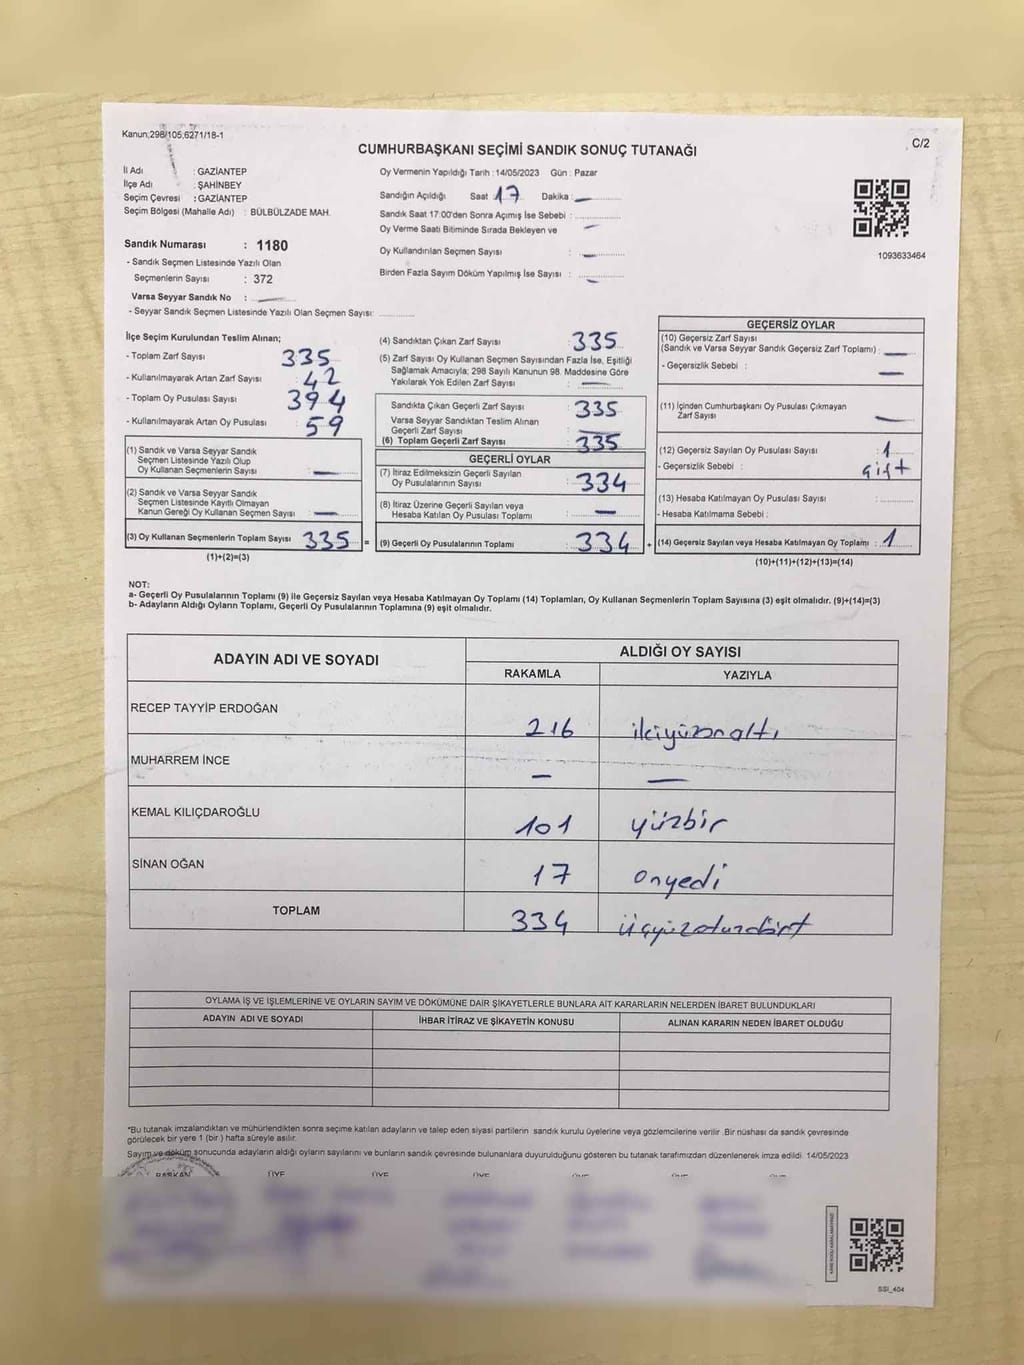 Kanun,298/105,6271/18-1
C/2
CUMHURBAŞKANI SEÇİMİ SANDIK SONUÇ TUTANAĞI
İl Adı : GAZİANTEP
İlçe Adı : ŞAHİNBEY
Seçim Çevresi : GAZİANTEP
Seçim Bölgesi (Mahalle Adı) : BÜLBÜLZADE MAH.
Sandık Numarası : 1180
- Sandık Seçmen Listesinde Yazılı Olan
Seçmenlerin Sayısı : 372
Varsa Seyyar Sandık No : —
- Seyyar Sandık Seçmen Listesinde Yazılı Olan Seçmen Sayısı: ..............
Oy Vermenin Yapıldığı Tarih : 14/05/2023 Gün : Pazar
Sandığın Açıldığı Saat 17 Dakika : —
Sandık Saat 17.00'den Sonra Açımış İse Sebebi : ..............
Oy Verme Saati Bitiminde Sırada Bekleyen ve —
Oy Kullandırılan Seçmen Sayısı : —
Birden Fazla Sayım Döküm Yapılmış İse Sayısı : —
1093633464
İlçe Seçim Kurulundan Teslim Alınan;
- Toplam Zarf Sayısı 335
- Kullanılmayarak Artan Zarf Sayısı : 42
- Toplam Oy Pusulası Sayısı : 394
- Kullanılmayarak Artan Oy Pusulası : 59
(1) Sandık ve Varsa Seyyar Sandık
Seçmen Listesinde Yazılı Olup
Oy Kullanan Seçmenlerin Sayısı : —
(2) Sandık ve Varsa Seyyar Sandık
Seçmen Listesinde Kayıtlı Olmayan
Kanun Gereği Oy Kullanan Seçmen Sayısı : —
(3) Oy Kullanan Seçmenlerin Toplam Sayısı : 335 =
(1)+(2)=(3)
(4) Sandıktan Çıkan Zarf Sayısı : 335
(5) Zarf Sayısı Oy Kullanan Seçmen Sayısından Fazla İse, Eşitliği
Sağlamak Amacıyla; 298 Sayılı Kanunun 98. Maddesine Göre
Yakılarak Yok Edilen Zarf Sayısı : —
Sandıkta Çıkan Geçerli Zarf Sayısı : 335
Varsa Seyyar Sandıktan Teslim Alınan
Geçerli Zarf Sayısı : —
(6) Toplam Geçerli Zarf Sayısı : 335
GEÇERLİ OYLAR
(7) İtiraz Edilmeksizin Geçerli Sayılan
Oy Pusulalarının Sayısı : 334
(8) İtiraz Üzerine Geçerli Sayılan veya
Hesaba Katılan Oy Pusulası Toplamı : —
(9) Geçerli Oy Pusulalarının Toplamı : 334 +
GEÇERSİZ OYLAR
(10) Geçersiz Zarf Sayısı
(Sandık ve Varsa Seyyar Sandık Geçersiz Zarf Toplamı) : —
- Geçersizlik Sebebi : —
(11) İçinden Cumhurbaşkanı Oy Pusulası Çıkmayan
Zarf Sayısı : —
(12) Geçersiz Sayılan Oy Pusulası Sayısı : 1
- Geçersizlik Sebebi : çift
(13) Hesaba Katılmayan Oy Pusulası Sayısı : ..............
- Hesaba Katılmama Sebebi :
(14) Geçersiz Sayılan veya Hesaba Katılmayan Oy Toplamı : 1
(10)+(11)+(12)+(13)=(14)
NOT:
a- Geçerli Oy Pusulalarının Toplamı (9) ile Geçersiz Sayılan veya Hesaba Katılmayan Oy Toplamı (14) Toplamları, Oy Kullanan Seçmenlerin Toplam Sayısına (3) eşit olmalıdır. (9)+(14)=(3)
b- Adayların Aldığı Oyların Toplamı, Geçerli Oy Pusulalarının Toplamına (9) eşit olmalıdır.
ADAYIN ADI VE SOYADI ALDIĞI OY SAYISI
RAKAMLA YAZIYLA
RECEP TAYYİP ERDOĞAN 216 ikiyüzonaltı
MUHARREM İNCE — —
KEMAL KILIÇDAROĞLU 101 yüzbir
SİNAN OĞAN 17 onyedi
TOPLAM 334 üçyüzotuzdört
OYLAMA İŞ VE İŞLEMLERİNE VE OYLARIN SAYIM VE DÖKÜMÜNE DAİR ŞİKAYETLERLE BUNLARA AİT KARARLARIN NELERDEN İBARET BULUNDUKLARI
ADAYIN ADI VE SOYADI İHBAR İTİRAZ VE ŞİKAYETİN KONUSU ALINAN KARARIN NEDEN İBARET OLDUĞU
*Bu tutanak imzalandıktan ve mühürlendikten sonra seçime katılan adayların ve talep eden siyasi partilerin sandık kurulu üyelerine veya gözlemcilerine verilir .Bir nüshası da sandık çevresinde
görülecek bir yere 1 (bir ) hafta süreyle asılır.
Sayım ve döküm sonucunda adayların aldığı oyların sayılarını ve bunların sandık çevresinde bulunanlara duyurulduğunu gösteren bu tutanak tarafımızdan düzenlenerek imza edildi. 14/05/2023
BAŞKAN ÜYE ÜYE ÜYE ÜYE ÜYE
SSI_404